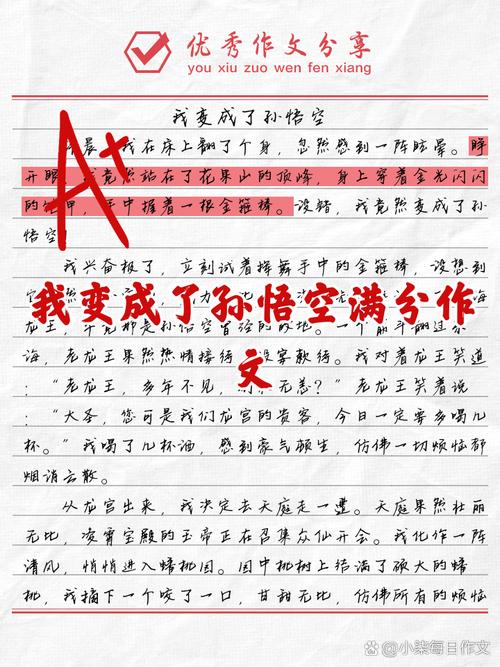 优秀作文分享
you xiu zuo wen fen xiang
我变成了孙悟空
A+
晨,我在床上翻了个身,忽然感到一阵眩晕。睁
开眼,我竟然站在了花果山的顶峰,身上穿着金光闪闪
的铠甲,手中握着一根金箍棒。没错,我竟然变成了孙
悟空!
我兴奋极了,立刻试着挥舞手中的金箍棒,没想到
我变成了孙悟空满分作
文
海,老龙王果然热情接待,设宴款待。我对着龙王笑道
:“老龙王,多年不见,别来无恙?”老龙王笑着说
:“大圣,您可是我们龙宫的贵客,今日一定要多喝几
杯。”我喝了几杯酒,感到豪气顿生,仿佛一切烦恼都
烟消云散。
从龙宫出来,我决定去天庭走一遭。天庭果然壮丽
无比,凌霄宝殿的玉帝正在召集众仙开会。我化作一阵
清风,悄悄进入蟠桃园。园中桃树上结满了硕大的蟠
桃,我摘下一个咬了一口,甘甜无比,仿佛所有的烦恼
小柒每日作文